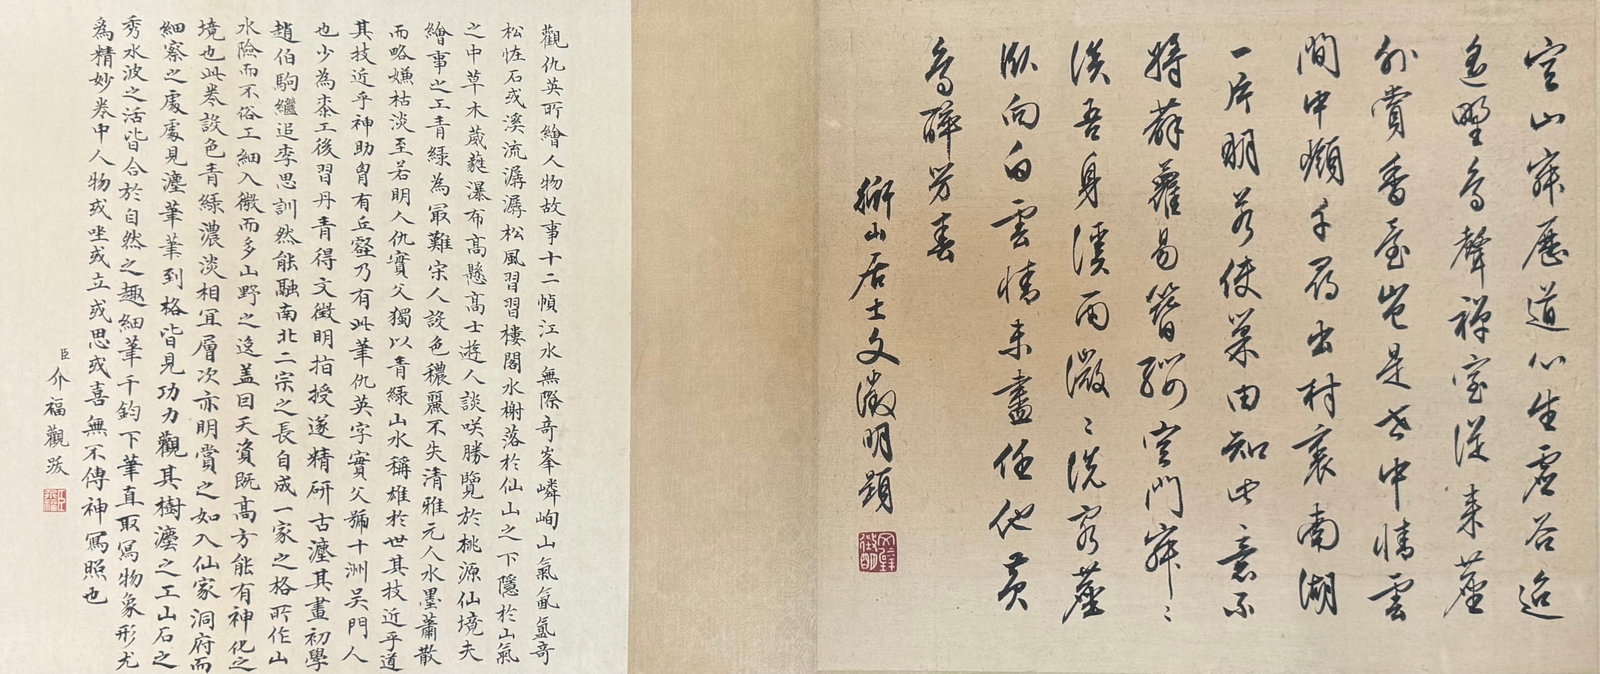 空山寂歷道心生虛谷迢
遙野鳥聲禪室從來塵
外賞香臺豈是世中情雲
間中嶺千尋出村裏南湖
一片明若使巢由知此意不
將蘿薜易簪纓空門寂寂
淡吾身溪雨微微洗客塵
臥向白雲情未盡任他黃
鳥醉芳春
衡山居士文徵明題
文徵明印
觀仇英所繪人物故事十二幀江水無際奇峯嶙峋山氣氤氳奇
松怪石或溪流潺潺松風習習樓閣水榭落於仙山之下隱於山氣
之中草木葳蕤瀑布高懸高士遊人談咲勝覽於桃源仙境夫
繪事之工青綠為最難宋人設色穠麗不失清雅元人水墨蕭散
而略嫌枯淡至若明人仇實父獨以青綠山水稱雄於世其技近乎道
其技近乎神助胷有丘壑乃有此筆仇英字實父號十洲吳門人
也少為桼工後習丹青得文徵明指授遂精研古灋其畫初學
趙伯駒繼追李思訓然能融南北二宗之長自成一家之格所作山
水險而不俗工細入微而多山野之逸盖因天資既高方能有神化之
境也此卷設色青綠濃淡相宜層次亦明賞之如入仙家洞府而
細察之處處見灋筆筆到格皆見功力觀其樹灋之工山石之
秀水波之活皆合於自然之趣細筆千鈞下筆直取寫物象形尤
為精妙卷中人物或坐或立或思或喜無不傳神寫照也
臣介福觀跋